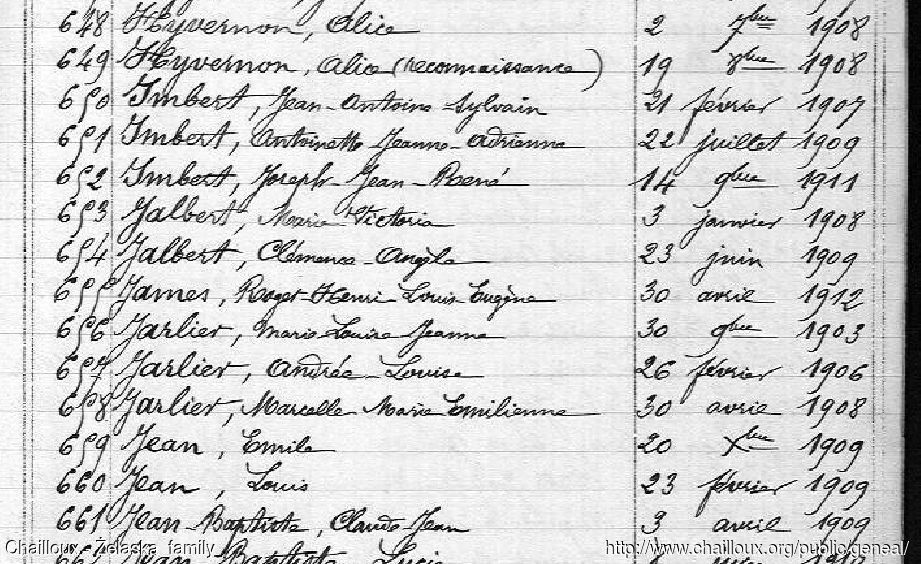 648 Hyvernon, Alice 2 7bre 1908
649 Hyvernon, Alice (reconnaissance) 19 8bre 1908
650 Imbert, Jean-Antoine Sylvain 21 février 1907
651 Imbert, Antoinette Jeanne-Adrienne 22 juillet 1909
652 Imbert, Joseph-Jean-René 14 9bre 1911
653 Jalbert, Marie Victoria 3 janvier 1908
654 Jalbert, Clémence-Angèle 23 juin 1909
655 James, Roger-Henri Louis Eugène 30 avril 1912
656 Jarlier, Marie Louise Jeanne 30 9bre 1903
657 Jarlier, Andrée-Louise 26 février 1906
658 Jarlier, Marcelle Marie Emilienne 30 avril 1908
659 Jean, Emile 20 Xbre 1909
660 Jean, Louis 23 février 1909
661 Jean-Baptiste, Claude Jean 3 avril 1909
Jean-Baptiste
Chailloux - Zelaska family http://www.chailloux.org/public/geneal/